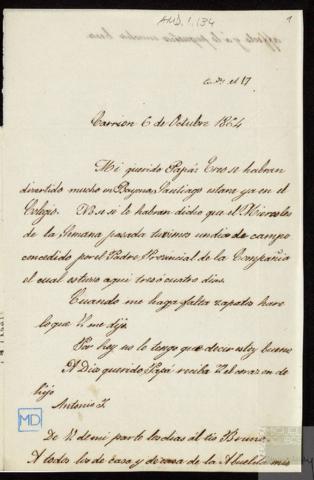 AMD, 1, 134
1
Carrion 6 de Octubre 1864
Mi querido Papá: Creo se habran
divertido mucho en Bayona, Santiago estara ya en el
Colegio. No se si le habran dicho que el Miercoles
de la Semana pasada tuvimos un dia de campo
concedido por el Padre Provincial de la Compañia
el cual estuvo aqui tres ó cuatro dias.
Cuando me haga falta zapatos hare
lo que V. me dijo.
Por hoy no le tengo que decir estoy bueno
A Dios querido Papá reciba V. el corazon de
hijo
Antonio
De V. de mi parte los dias al tio Bruno.
A todos los de casa y de casa de la Abuelita mis
MD